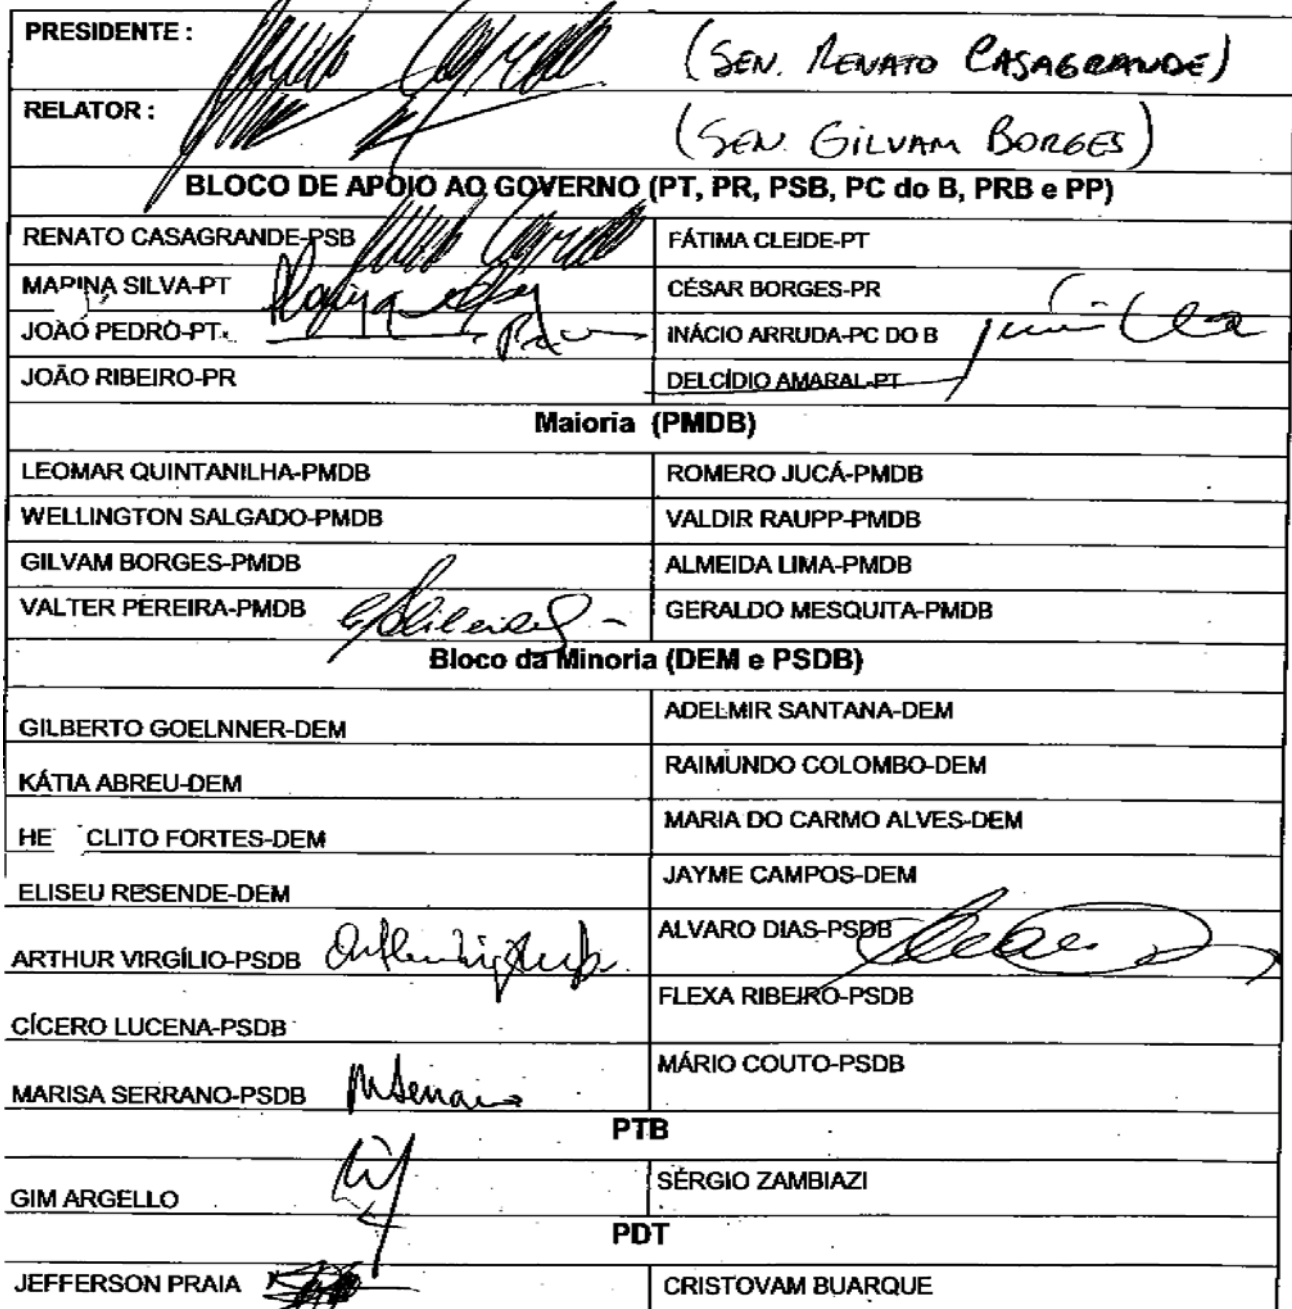 PRESIDENTE : (SEN. RENATO CASAGRANDE)
RELATOR : (SEN. GILVAM BORGES)
BLOCO DE APOIO AO GOVERNO (PT, PR, PSB, PC do B, PRB e PP)
RENATO CASAGRANDE-PSB FÁTIMA CLEIDE-PT
MARINA SILVA-PT CÉSAR BORGES-PR
JOÃO PEDRO-PT INÁCIO ARRUDA-PC DO B
JOÃO RIBEIRO-PR DELCÍDIO AMARAL-PT
Maioria (PMDB)
LEOMAR QUINTANILHA-PMDB ROMERO JUCÁ-PMDB
WELLINGTON SALGADO-PMDB VALDIR RAUPP-PMDB
GILVAM BORGES-PMDB ALMEIDA LIMA-PMDB
VALTER PEREIRA-PMDB GERALDO MESQUITA-PMDB
Bloco da Minoria (DEM e PSDB)
GILBERTO GOELNNER-DEM ADELMIR SANTANA-DEM
KÁTIA ABREU-DEM RAIMUNDO COLOMBO-DEM
HE CLITO FORTES-DEM MARIA DO CARMO ALVES-DEM
ELISEU RESENDE-DEM JAYME CAMPOS-DEM
ARTHUR VIRGÍLIO-PSDB ALVARO DIAS-PSDB
CÍCERO LUCENA-PSDB FLEXA RIBEIRO-PSDB
MARISA SERRANO-PSDB MÁRIO COUTO-PSDB
PTB
GIM ARGELLO SÉRGIO ZAMBIAZI
PDT
JEFFERSON PRAIA CRISTOVAM BUARQUE